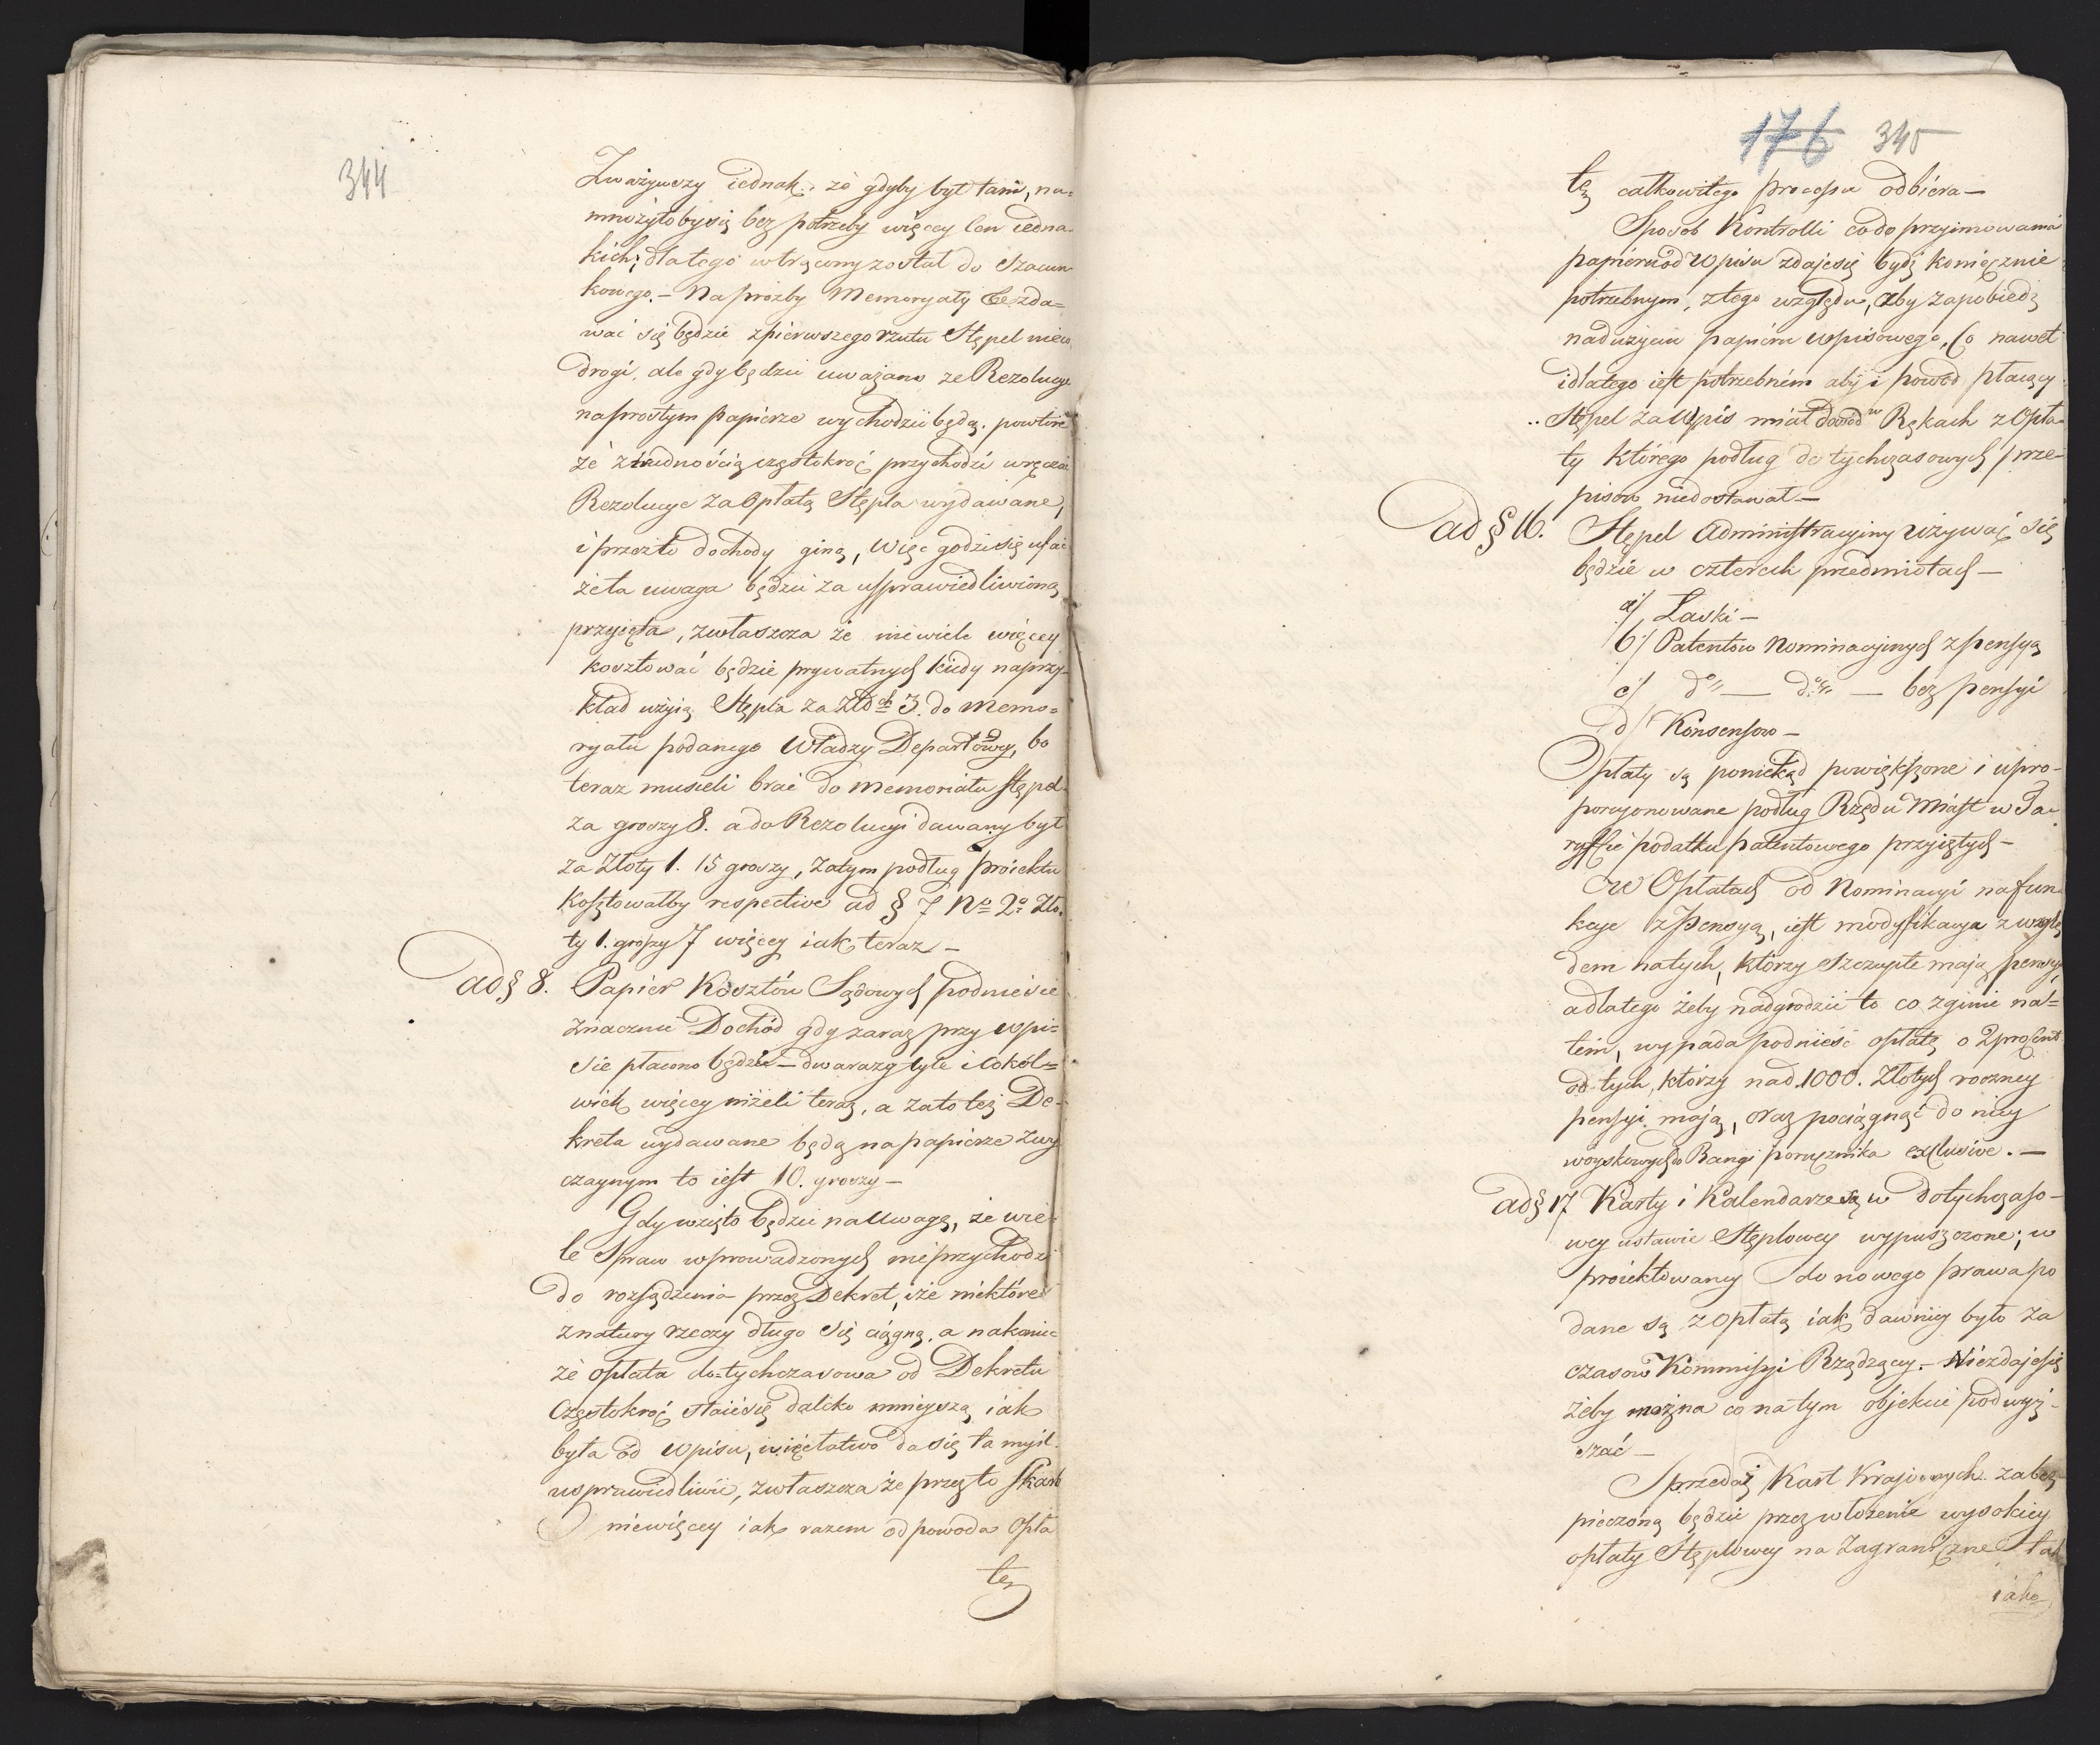 344
Zważywszy iednak, że gdyby był tam, na=
mnożyłoby się bez potrzeby więcey Cen iedna=
kich; dlatego wtrącony został do Szacun
kowego. – Na prozby Memoryały Ce zda=
wać się będzie z pierwszego rzutu Stępel nieco
drogi, ale gdy będzie uważano ze Rezolucye
na prostym papierze wychodzić będą. powtóre
że z trudnością częstokroć przychodzi wręczać
Rezolucye za Opłatą Stępla wydawane,
i przezto dochody giną, więc godzi się ufać
że ta uwaga będzie za usprawiedliwioną
przyięta, zwłaszcza że niewiele więcey
kosztować będzie prywatnych kiedy naprzy=
kład użyią Stępla za Złotch 3. do memo=
ryału podanego Władzy Departowey, bo
teraz musieli brać do memoriału stępel
za groszy 8. a do Rezolucyi dawany był
za Złoty 1. 15 groszy, zatym podług proiektu
kosztowałby respective ad § 7 No 2o Zło=
ty 1. groszy 7 więcey iak teraz –
ad § 8. Papier Kosztów Sądowych podniesie
znacznie Dochód gdy zaraz przy wpi=
sie płacono będzie – dwa razy tyle i cokol=
wiek więcey niżeli teraz, a zato też De=
kreta wydawane będą na papierze zwy
czaynym to iest 10. groszy –
Gdy wzięto będzie na Uwagę, że wie=
le Spraw wprowadzonych nieprzychodzi
do rozsądzenia przez Dekret, iże niektóre
z natury rzeczy długo się ciągną, a nakoniec
że opłata dotychczasowa od Dekretu
Częstokroć staie się daleko mnieyszą iak
była od wpisu, więc łatwo da się ta myśl
usprawiedliwić, zwłaszcza że przez to Skarb
niewięcey iak razem od powoda opła
tę
176 345
tę całkowitego procesu odbiera –
Sposob Kontrolli co do przyimowania
papieru od Wpisu zdaje się bydź koniecznie
potrzebnym, z tego względu, aby zapobiedz
nadużyciu papieru wpisowego, Co nawet
i dlatego iest potrzebném aby i powód płacący
Stępel za Wpis miał dowód w Rękach z Opła=
ty którego podług dotychczasowych prze=
pisów niedostawał –
ad § 16. Stępel Administracyiny używać się
będzie w czterech przedmiotach –
a/ Łaski –
b/ Patentów Nominacyinych z pensyą
c/ do – do – bez pensyi
d/ Konsensow –
Opłaty są poniekąd powiększone i upro=
porcyonowane podług Rzędu Miast w Ta=
ryffie podatku patentowego przyiętych –
W Opłatach od Nominacyi na fun=
kcye z Pensyą, iest modyfikacya z wzglę
dem na tych, którzy szczupłe mają pensye
a dlatego żeby nadgrodzić to co zginie na=
tém, wypada podnieść opłatę o 2 procent
od tych, którzy nad 1000. Złotych roczney
pensyi mają, oraz pociągnąć do niey
woyskowych do Rangi porucznika exclusive. –
ad § 17 Karty i Kalendarze są w dotychczaso=
wey ustawie Stęplowey wypuszczone; w
proiektowaney do nowego prawa po
dane są z opłatą iak dawniey było za
czasów Kommisyi Rządzącey. – Niezdaje się
żeby można co na tym objekcie podwyż=
szać –
Sprzedaż Kart Krajowych zabez=
pieczoną będzie przez włożenie wysokiey
opłaty Stęplowey na Zagraniczne tak
iako